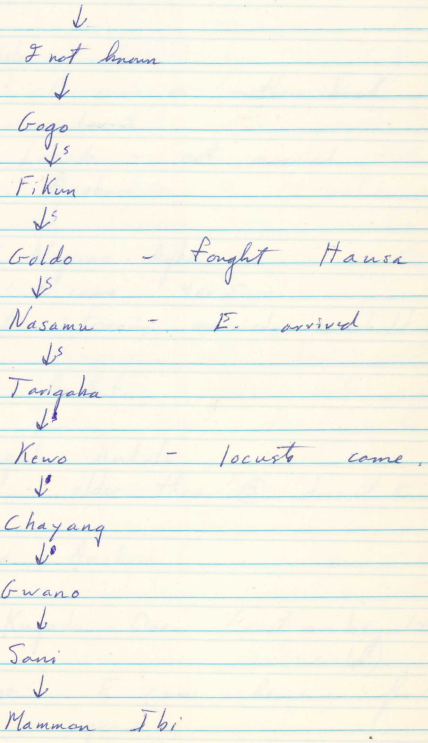 ↓
I not known
↓
Gogo
↓s
Fikun
↓s
Goldo - fought Hausa
↓s
Nasamu - E. arrived
↓s
Tarigaha
↓
Kewo - locusts came.
↓
Chayang
↓
Gwano
↓
Sani
↓
Mamman Ibi